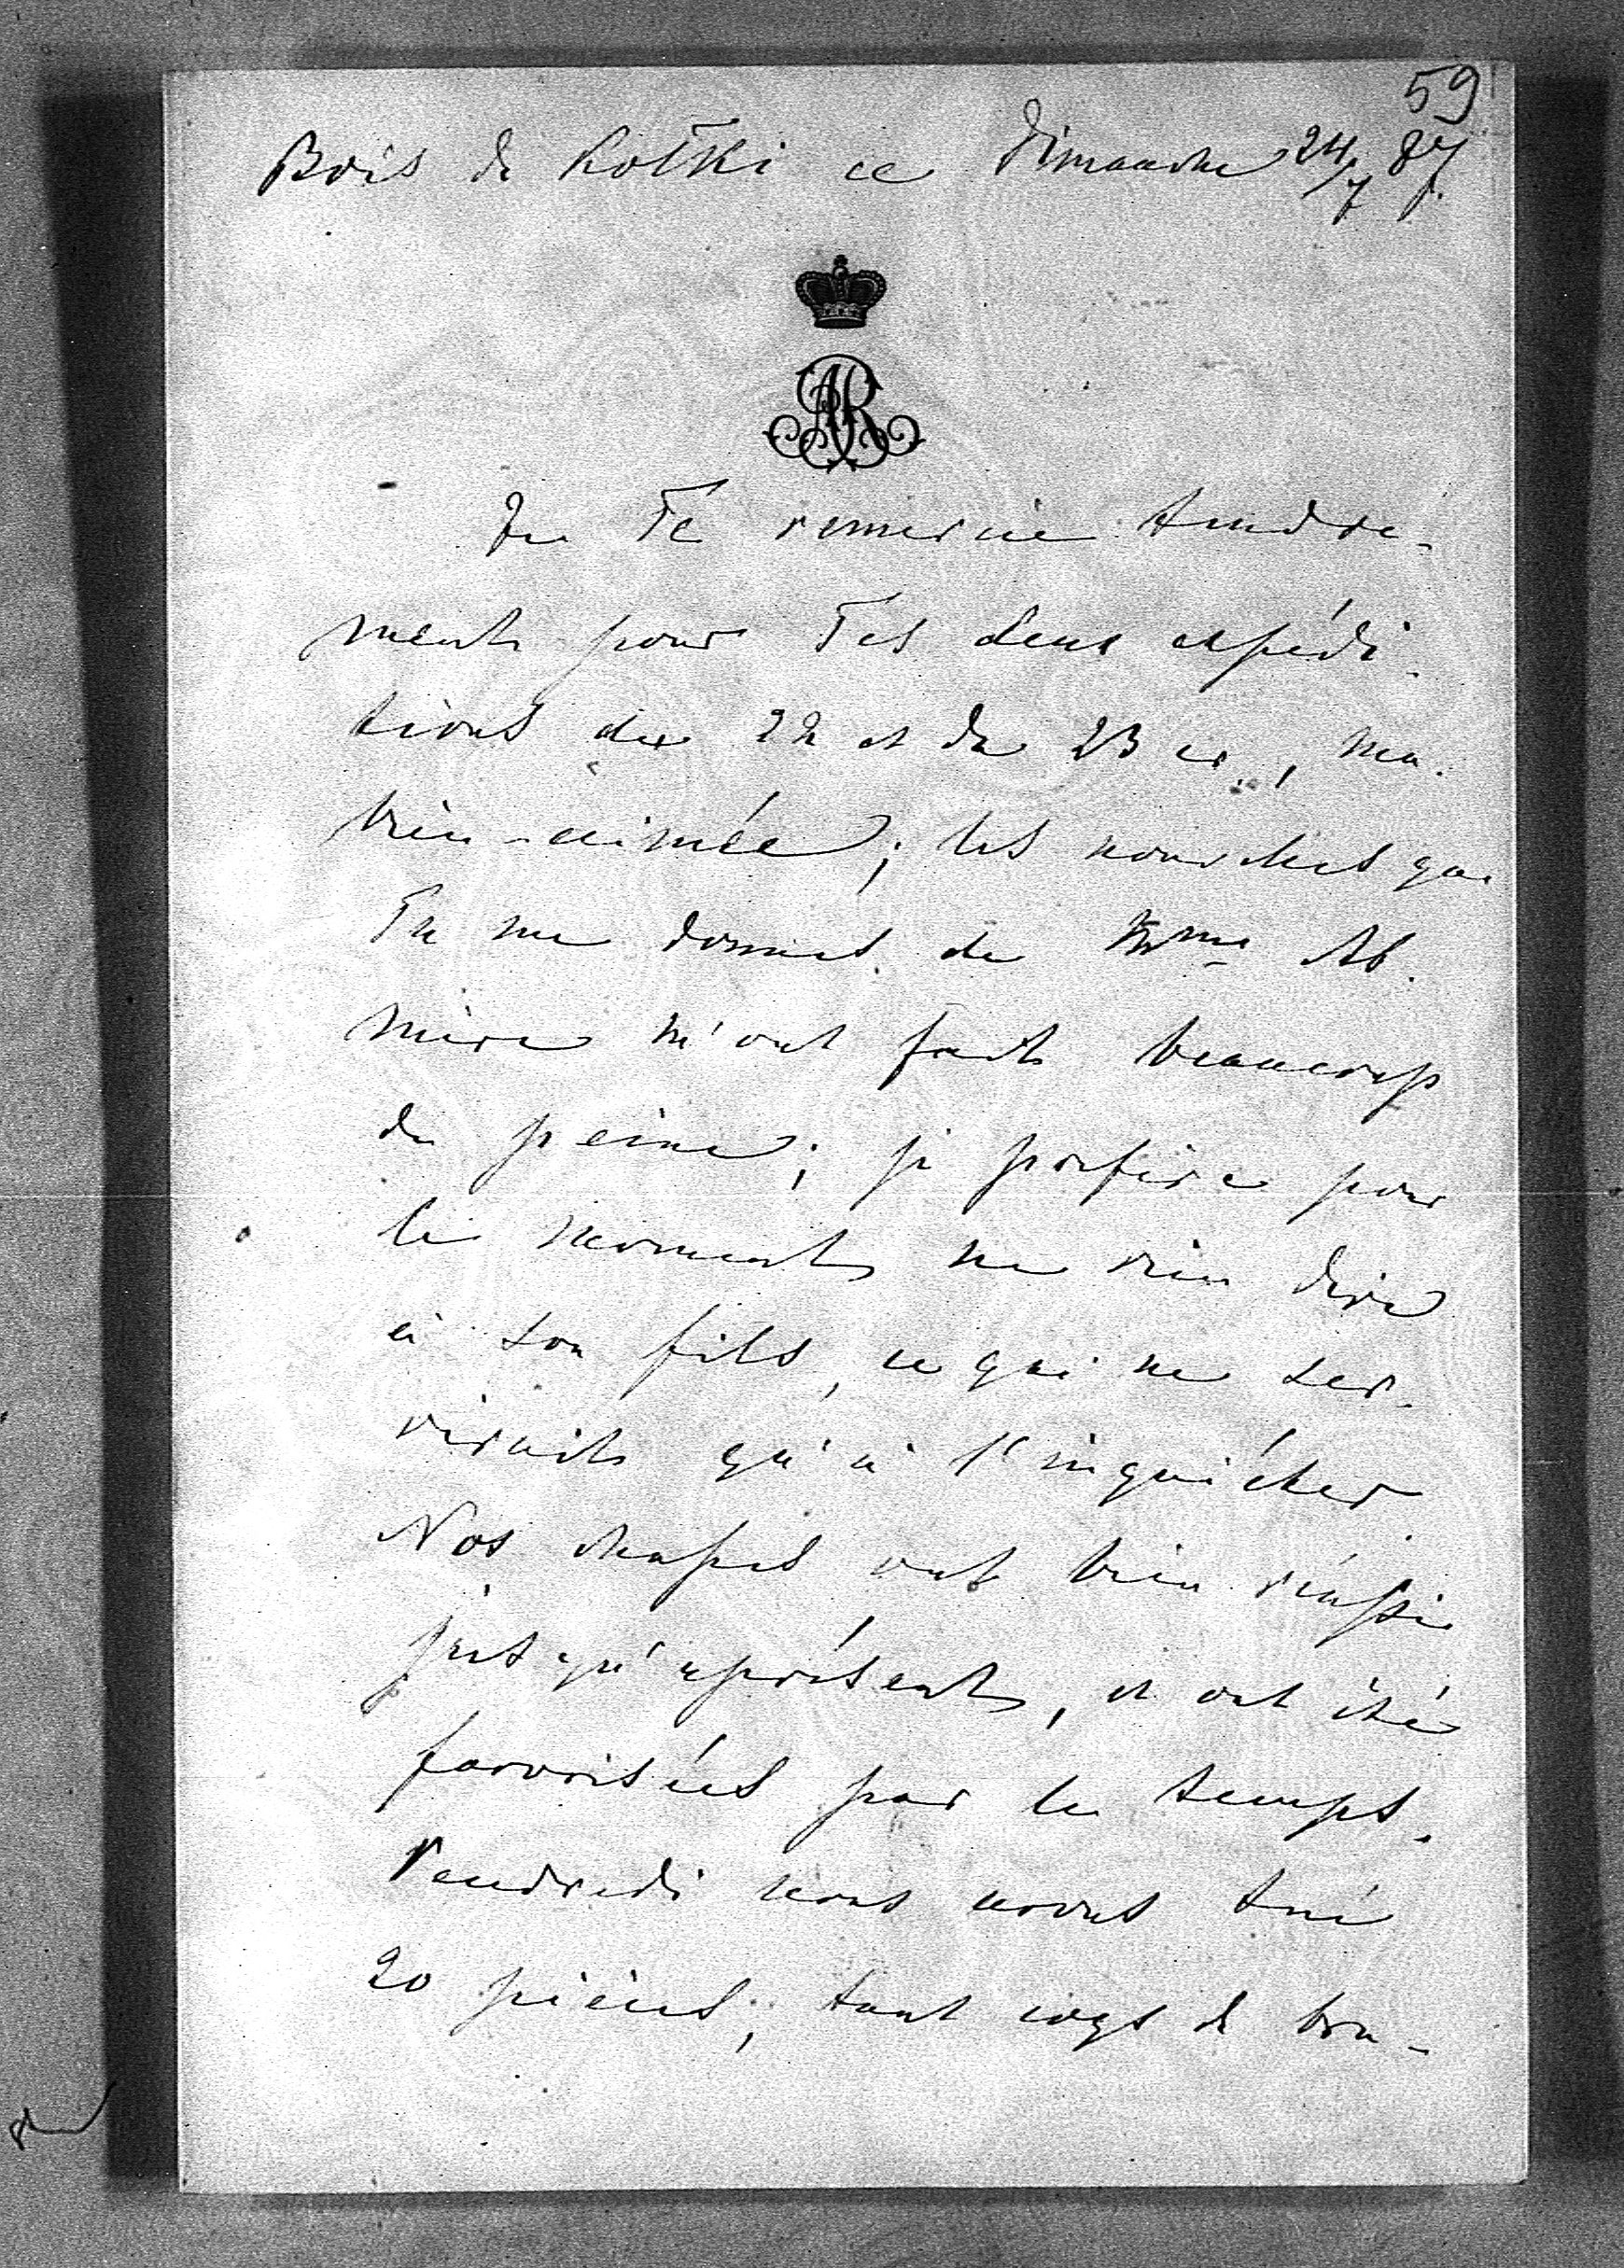 59
Bois de Kotki ce Dimanche 24/7 87.
AR
Je Te remercie tendre-
ment pour Tes deux expédi-
tions du 22 et du 23 cr., ma
bien-aimée; les nouvelles que
Tu me donnes de Mme Ab.
mère m'ont fait beaucoup
de peine; je préfère pour
le moment ne rien dire
à son fils, ce qui ne ser-
virait qu'à l'inquiéter.
Nos chasses ont bien réussi
jusqu'àprésent, et ont été
favorisées par le temps.
Vendredi nous avons tué
20 pièces, tant coqs de bru-